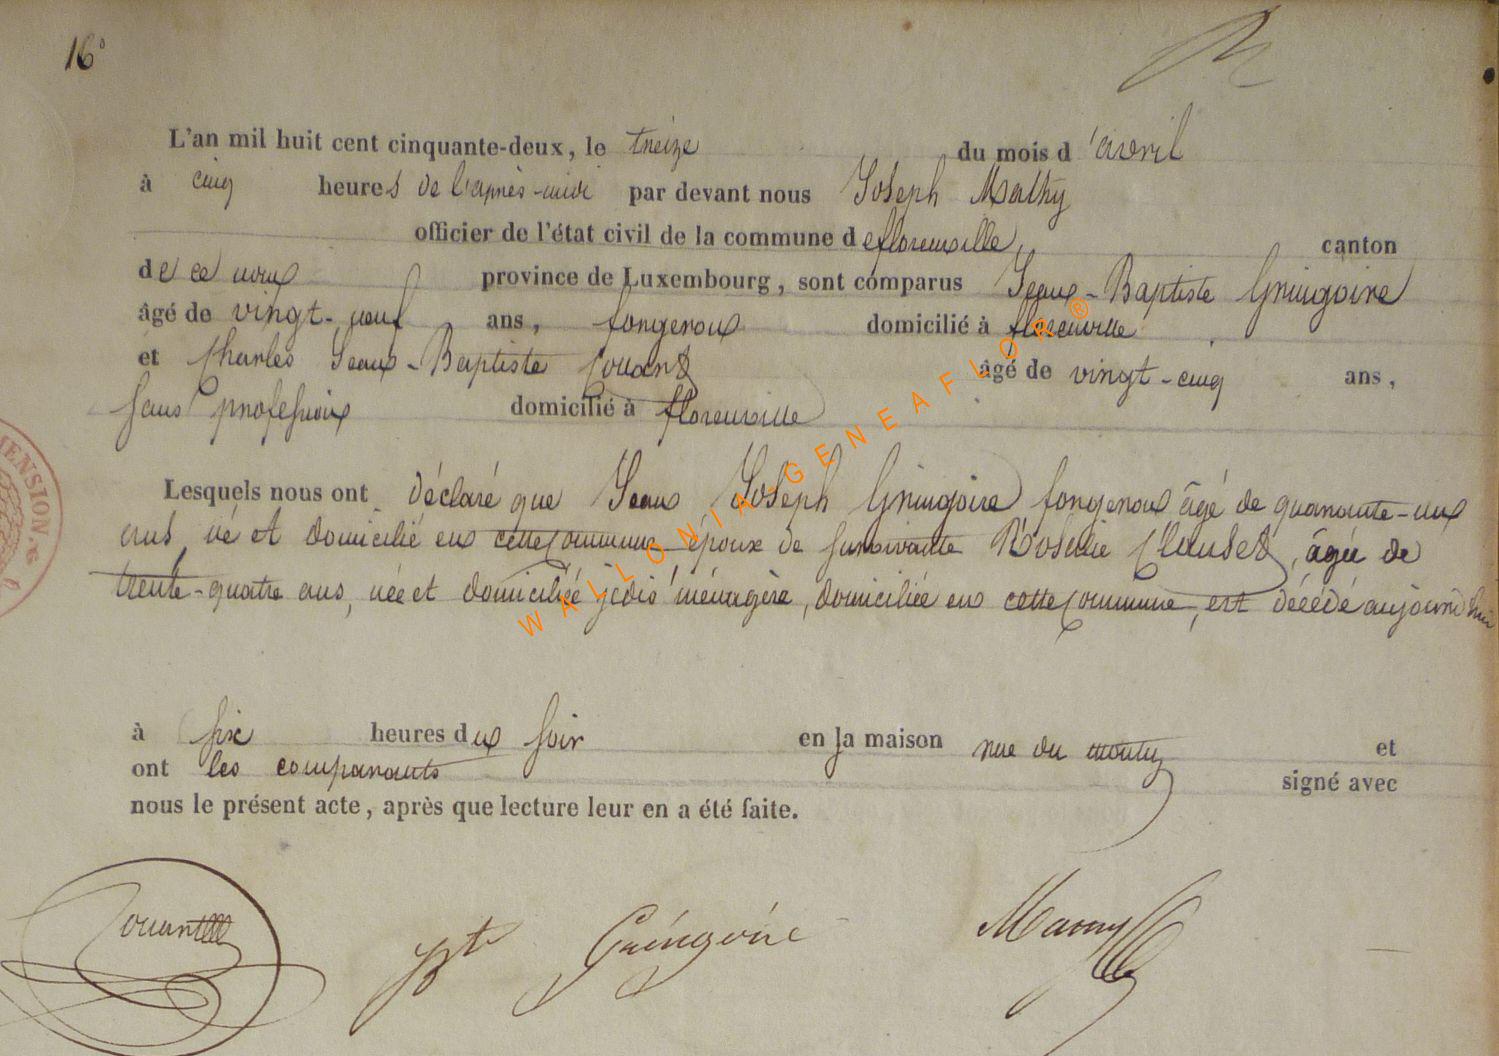 16°
L'an mil huit cent cinquante-deux, le treize du mois d'avril
à cinq heures de l'après-midi par devant nous Joseph Mathy
officier de l'état civil de la commune de florenville, canton
de ce nom province de Luxembourg, sont comparus Jean-Baptiste Gringoire
âgé de vingt-neuf ans, forgeron domicilié à florenville
et Charles Jean-Baptiste Couant âgé de vingt-cinq ans,
sans profession domicilié à florenville
Lesquels nous ont déclaré que Jean Joseph Gringoire forgeron âgé de quarante-un
ans, né et domicilié en cette commune époux de survivante Rosalie Clauset, âgée de
trente-quatre ans, née et domiciliée ménagère, domiciliée en cette commune, est décédé aujourd'hui
à six heures du soir en la maison rue du et
ont les comparants signé avec
nous le présent acte, après que lecture leur en a été faite.
Couant Bt Gringoire
WALLONIA-GENEAFLOR®
MENSION